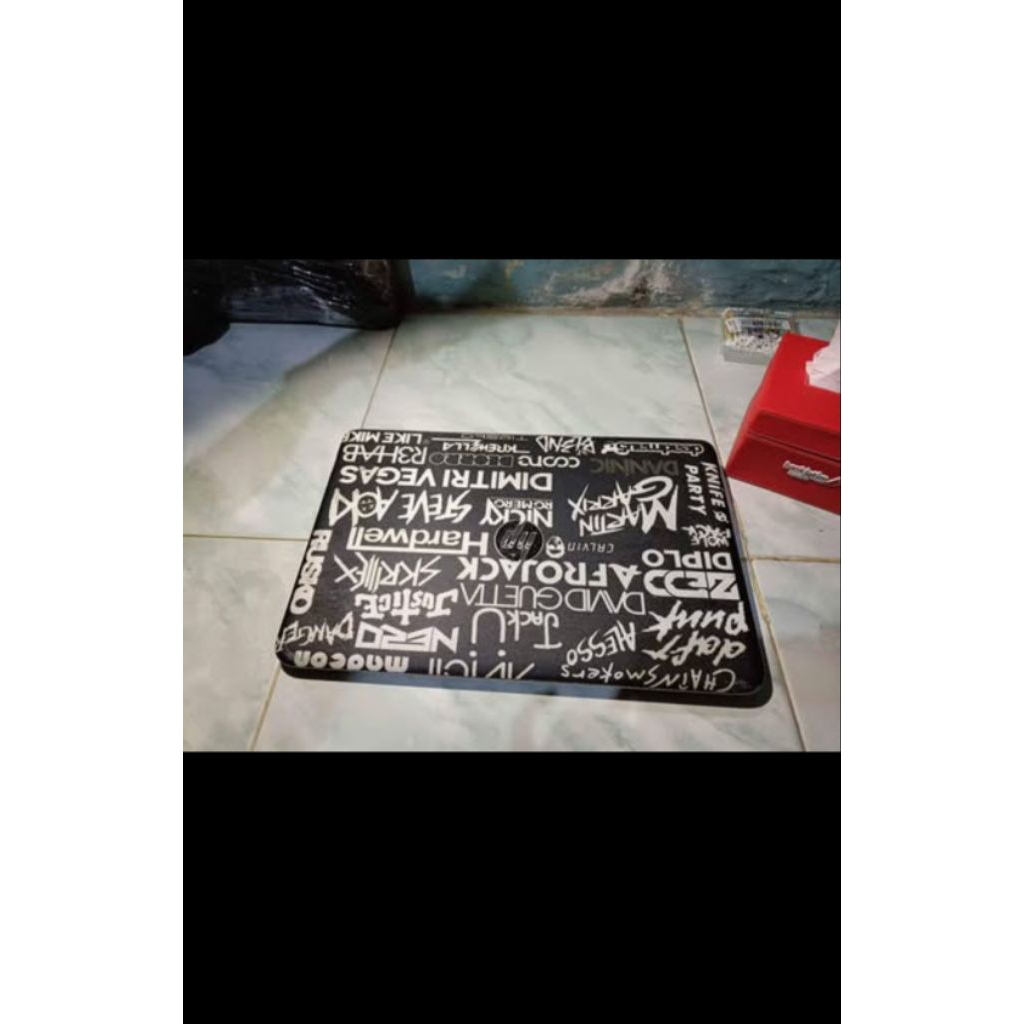 CHAINSmokers
AVICII
madeon
daft
punk
ALESSO
JACK Ü
NERO
DANGER
DAVID GUETTA
JUSTICE
RUSKO
ZEDD
DIPLO
AFROJACK
SKRILLEX
CALVIN
hp
Hardwell
MARTIN
GARRIX
NICKY
ROMERO
STEVE AOKI
KNIFE
PARTY
DANNIC
DIMITRI VEGAS
LIKE MIKE
coone
DEORRO
R3HAB
deadmau5
KREWELLA
TIËSTO